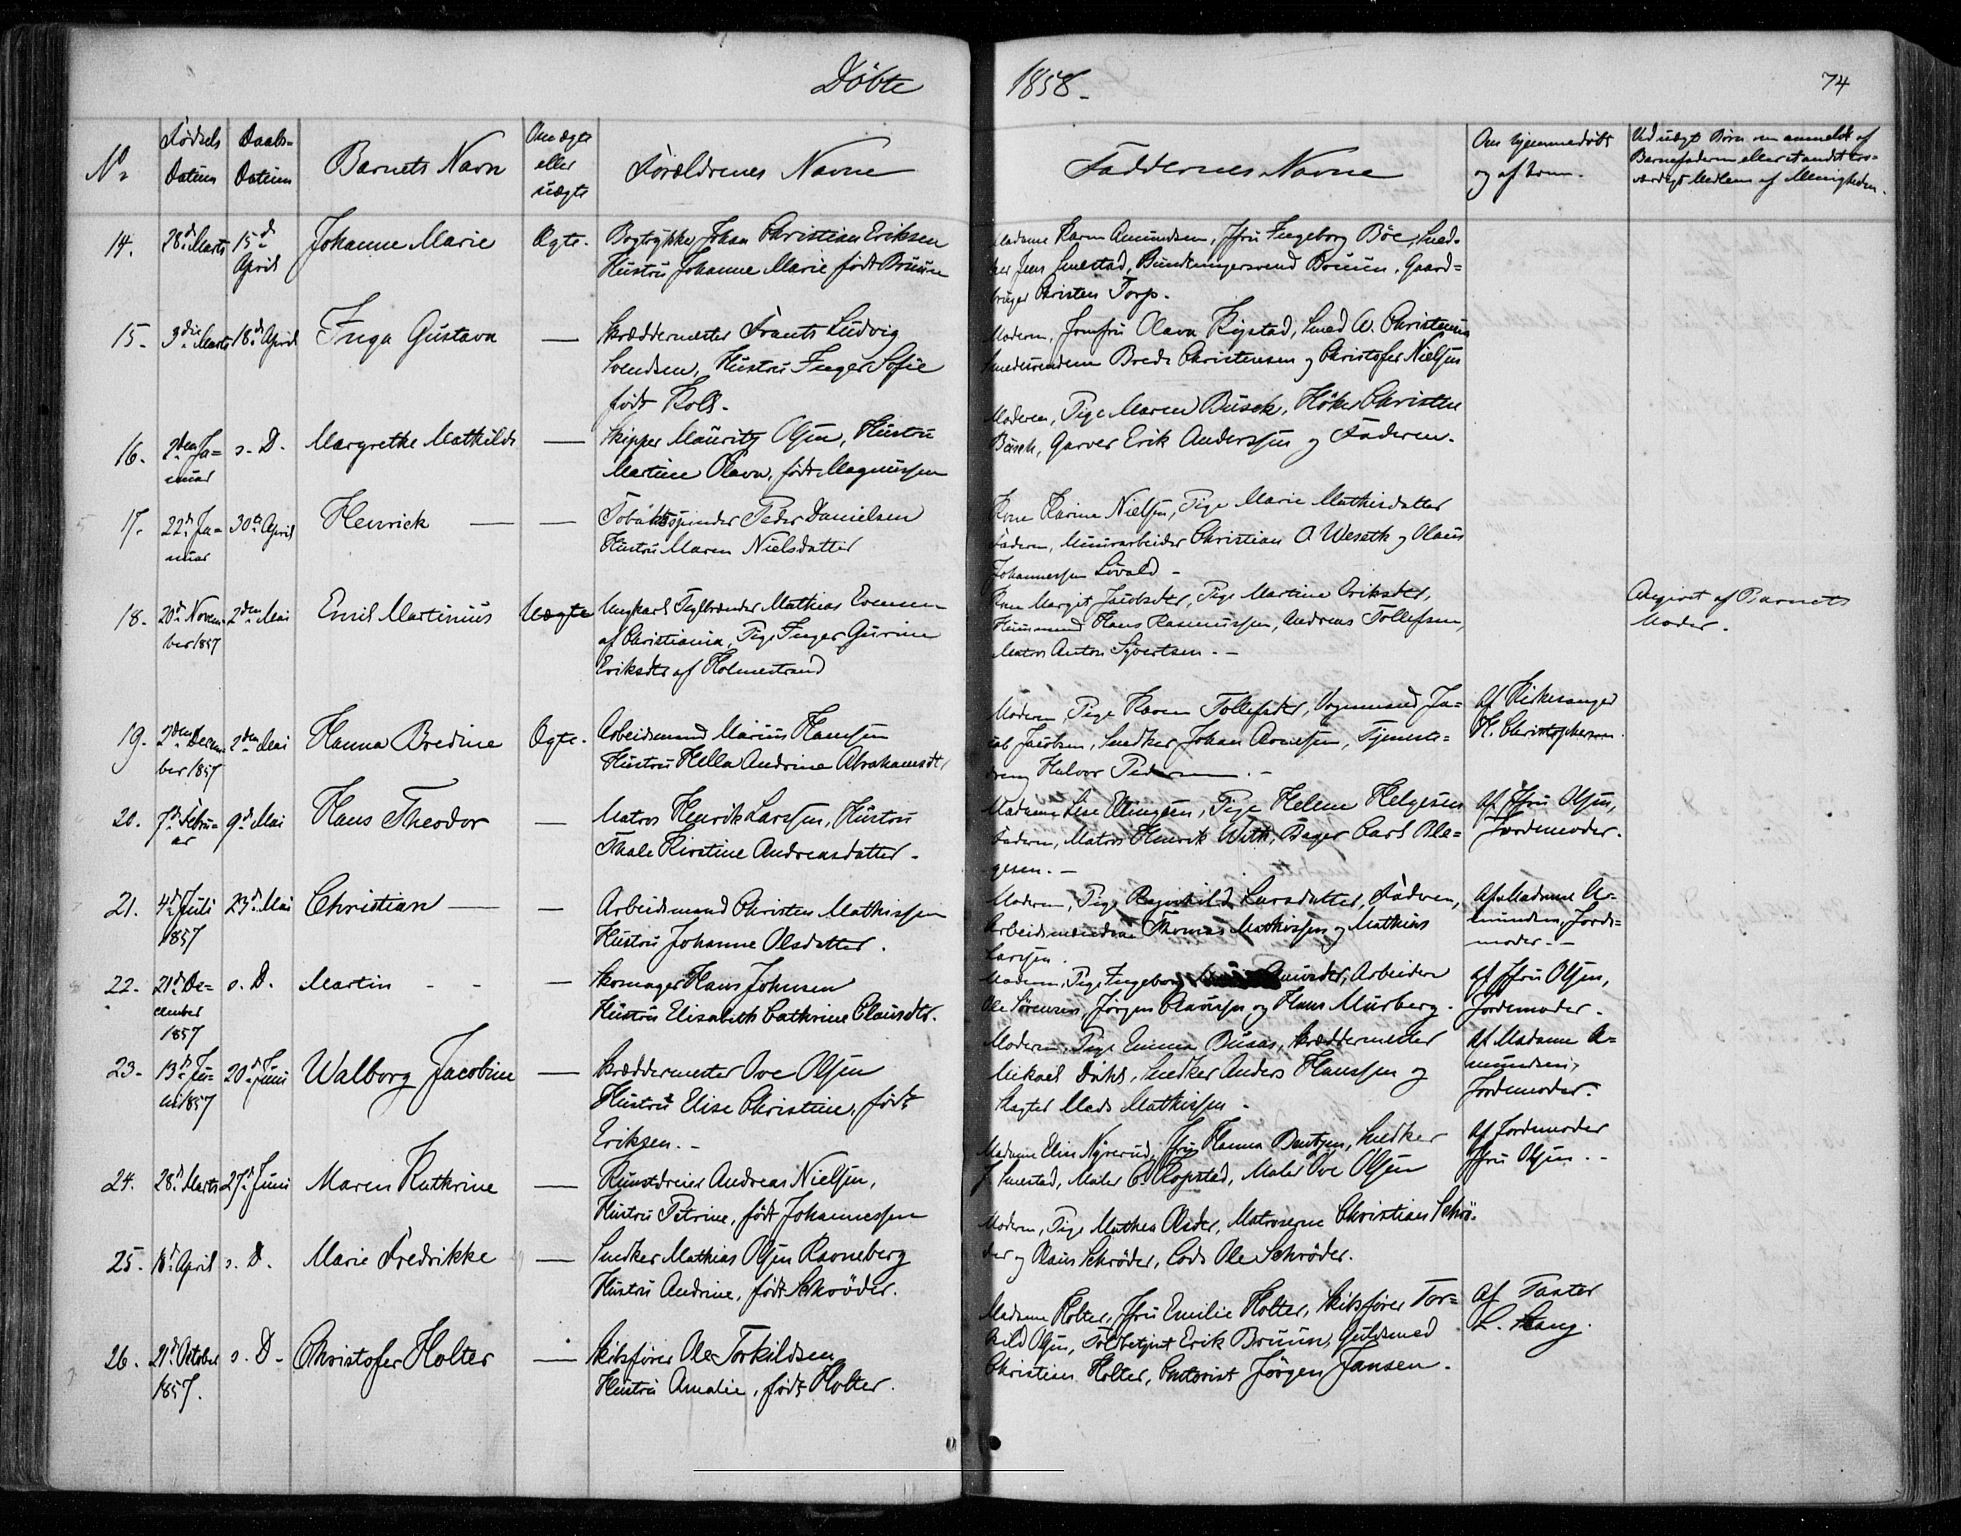 Døbte
1858.
74
No
Fødsels Datum
Daabs- Datum
Barnets Navn
Om ægte eller uægte
Forældrenes Navne
Faddernes Navne
Om hjemmedøbt og af hvem.
Ved uægte Børn om anmeldt af
Barnefaderen eller et andet tro-
værdigt Medlem af Menigheden.
14. 28de Marts 15de April Johanne Marie Ægte.
Bogtrykker Johan Christian Eriksen
Hustru Johanne Marie født Bruun
Madame Karen Amundsen, Jfru Ingeborg Böe, Sned-
ker Jens Smestad, Bundtmagersvend Bruun, Gaard-
bruger Christen Torp.
15. 3die Marts 18de April Inga Gustava —
Skræddermester Frants Ludvig
Svendsen, Hustru Inger Sofie
født Kols.
Moderen, Jomfru Olava Rigstad, Smed A. Christensen
Smedesvendene Brede Christensen og Christofer Nielsen
16. 2den Ja-
nuar s. D. Margrethe Mathilde —
Skipper Mauritz Olsen, Hustru
Martine Olava, født Magnussen
Moderen, Pige Maren Busch, Höker Christen
Busch, Garver Erik Anderssen og Faderen.
17. 22de Ja-
nuar 30te April Henrick — —
Tobakspinder Peder Danielsen
Hustru Maren Nielsdatter
Kone Karine Nielsen, Pige Marie Mathisdatter
Faderen, Muurarbeider Christian O. Weseth og Olaus
Johannessen Lövald -
18. 20de Novem-
ber 1857 2den Mai Emil Martinius Uægte
Ungkarl Teglbrænder Mathias Evensen
af Christiania, Pige Inger Gurine
Eriksdtr af Holmestrand
Kone Margit Jacobsdtr, Pige Martine Eriksdtr,
Huusmand Hans Rasmussen, Andreas Tollefsen,
Matros Anton Syvertsen. -
Angivet af Barnets
Moder.
19. 2den Decem-
ber 1857 2den Mai Hanna Bredine Ægte.
Arbeidsmand Marius Hanssen
Hustru Hella Andrine Abrahamsdtr
Moderen, Pige Karen Tollefsdtr, Vognmand Ja-
cob Jacobsen, Snedker Johan Arnessen, Tjeneste-
dreng Halvor Pedersen. -
Af Kirkesanger
H. Christophersen.
20. 7de Febru-
ar 9de Mai Hans Theodor —
Matros Henrik Larssen, Hustru
Thale Kirstine Andreasdatter.
Madame Lise Ellingsen, Pige Helene Helgesen
Faderen, Matros Henrik With, Bager Carl Bla-
gesen. -
Af Jfru Olsen,
Jordemoder.
21. 4de Juli
1857 23de Mai Christian — —
Arbeidsmand Christen Mathissen
Hustru Johanne Olsdatter.
Moderen, Pige Ragnhild Larsdatter, Faderen,
Arbeidsmændene Thomas Mathissen og Mathias
Larssen.
Af Madame A-
mundsen, Jorde-
moder. -
22. 21de De-
cember
1857 s. D. Martin - - —
Skomager Hans Johnsen
Hustru Elisabeth Cathrine Clausdtr.
Moderen, Pige Ingeborg Amundsdtr, Arbeiderne
Ole Sörensen, Jörgen Claussen og Hans Murberg.
Af Jfru Olsen,
Jordemoder.
23. 13de Ju-
ni 1857 20de Juni Walborg Jacobine —
Skræddermester Ove Olsen
Hustru Elise Christine, født
Eriksen. -
Moderen, Pige Emma Busas, Skræddermester
Mikael Dahl, Snedker Anders Hanssen og
Slagter Mads Mathissen -
Af Madame A-
mundsen,
Jordemoder.
24. 28de Marts 27de Juni Maren Kathrine —
Kunstdreier Andreas Nielsen,
Hustru Petrine, født Johannessen
Madame Elise Nyrerud, Jfru Hanna Bentzen, Snedker
J. Smestad, Maler C. Kopstad, Maler Ove Olsen
Af Jordemoder
Jfru Olsen. -
25. 18de April s. D. Marie Fredrikke —
Snedker Mathias Olsen Ravneberg
Hustru Andrine, født Schrøder.
Moderen, Pige Mathea Olsdtr, Matroserne Christian Schrö-
der og Olaus Schröder, Lods Ole Schröder.
26. 21de October
1857. s. D. Christofer Holter —
Skibsfører Ole Torkildsen
Hustru Amalie, født Holter.
Madame Holter, Jfru Emilie Holter, Skibsfører Tor-
kild Olsen, Toldbetjent Erik Bruun, Guldsmed
Christian Holter, Contorist Jörgen Jansen.
Af Pastor
L. Lang.